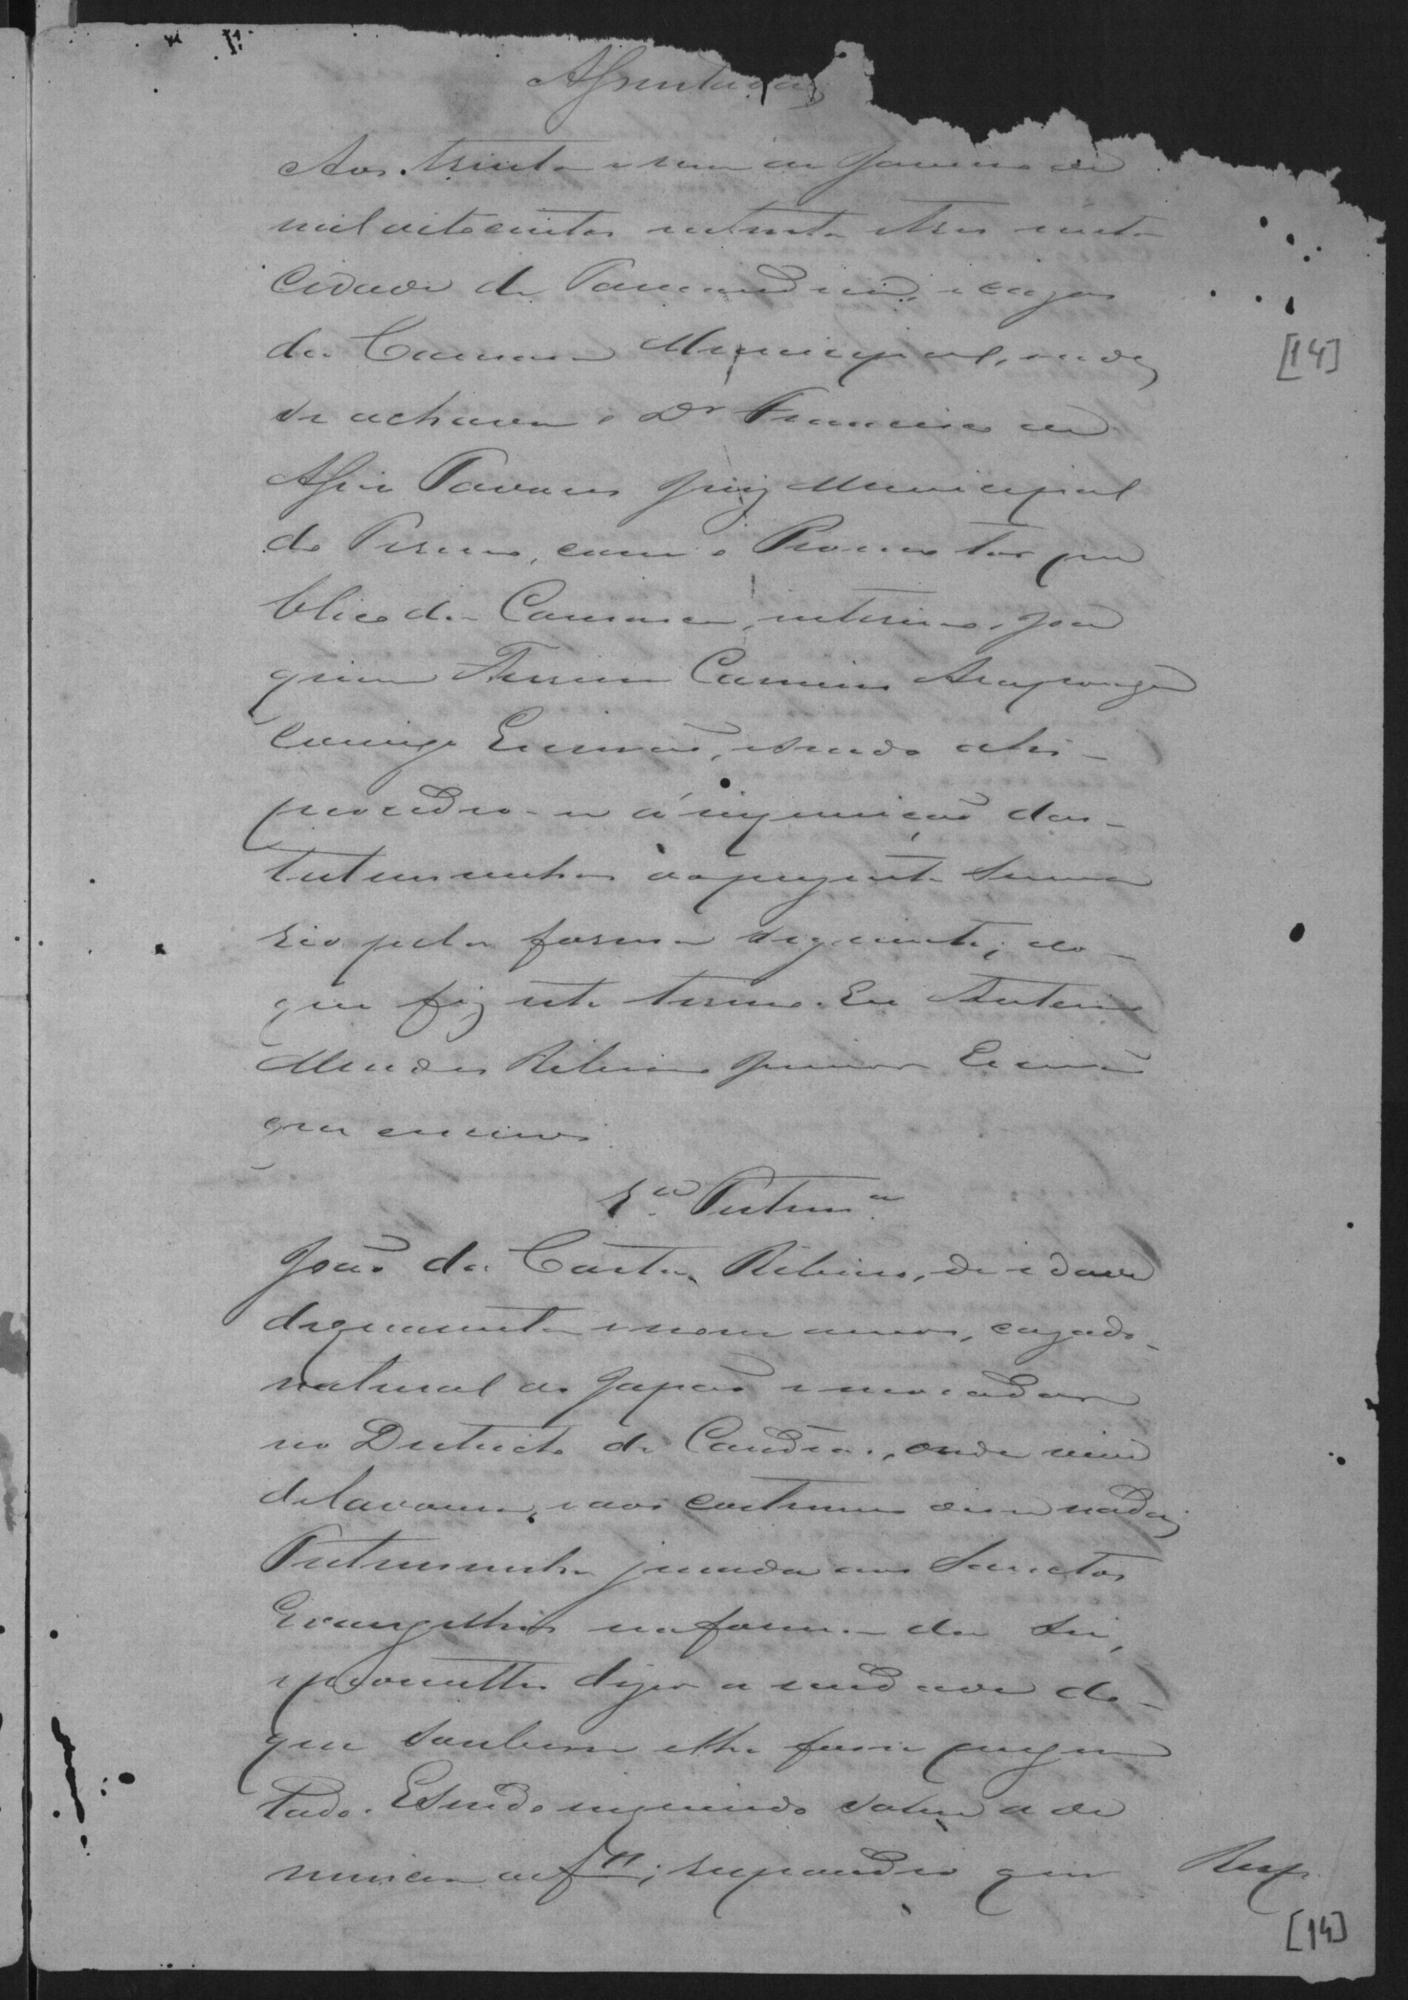 Assentada
Aos trinta e um de Janeiro de
mil oitocentos setenta e tres nesta
Cidade de Tamanduá, e cazas
da Camara Municipal, onde
se achava o Dr Francisco de
Assis Tavares Juiz Municipal
do Termo, com o Promotor pu
blico da Comarca, interino, Joa
quim Ferreira Carneiro
Comigo Escrivão, sendo ahi
procedeo-se á inquirição das
testemunhas do prezente Summa
rio pela forma seguinte; do
que fiz este termo. Eu Antonio
Mendes Ribeiro Junior Escrivão
que escrevi
1.a Testem.a
João da Costa Ribeiro, de idade
de quarenta e nove annos, cazado
natural do Japão e morador
no Districto de Candeas, onde vive
de lavoura, e aos costumes disse nada;
Testemunha jurada aos Sanctos
Evangelhos na forma da Lei,
e prometteo dizer a verdade do
que soubesse e lhe fosse pergun
tado. E sendo inquirido sobre a de
nuncia de f II; respondeo que
Resp
[14]
[14]